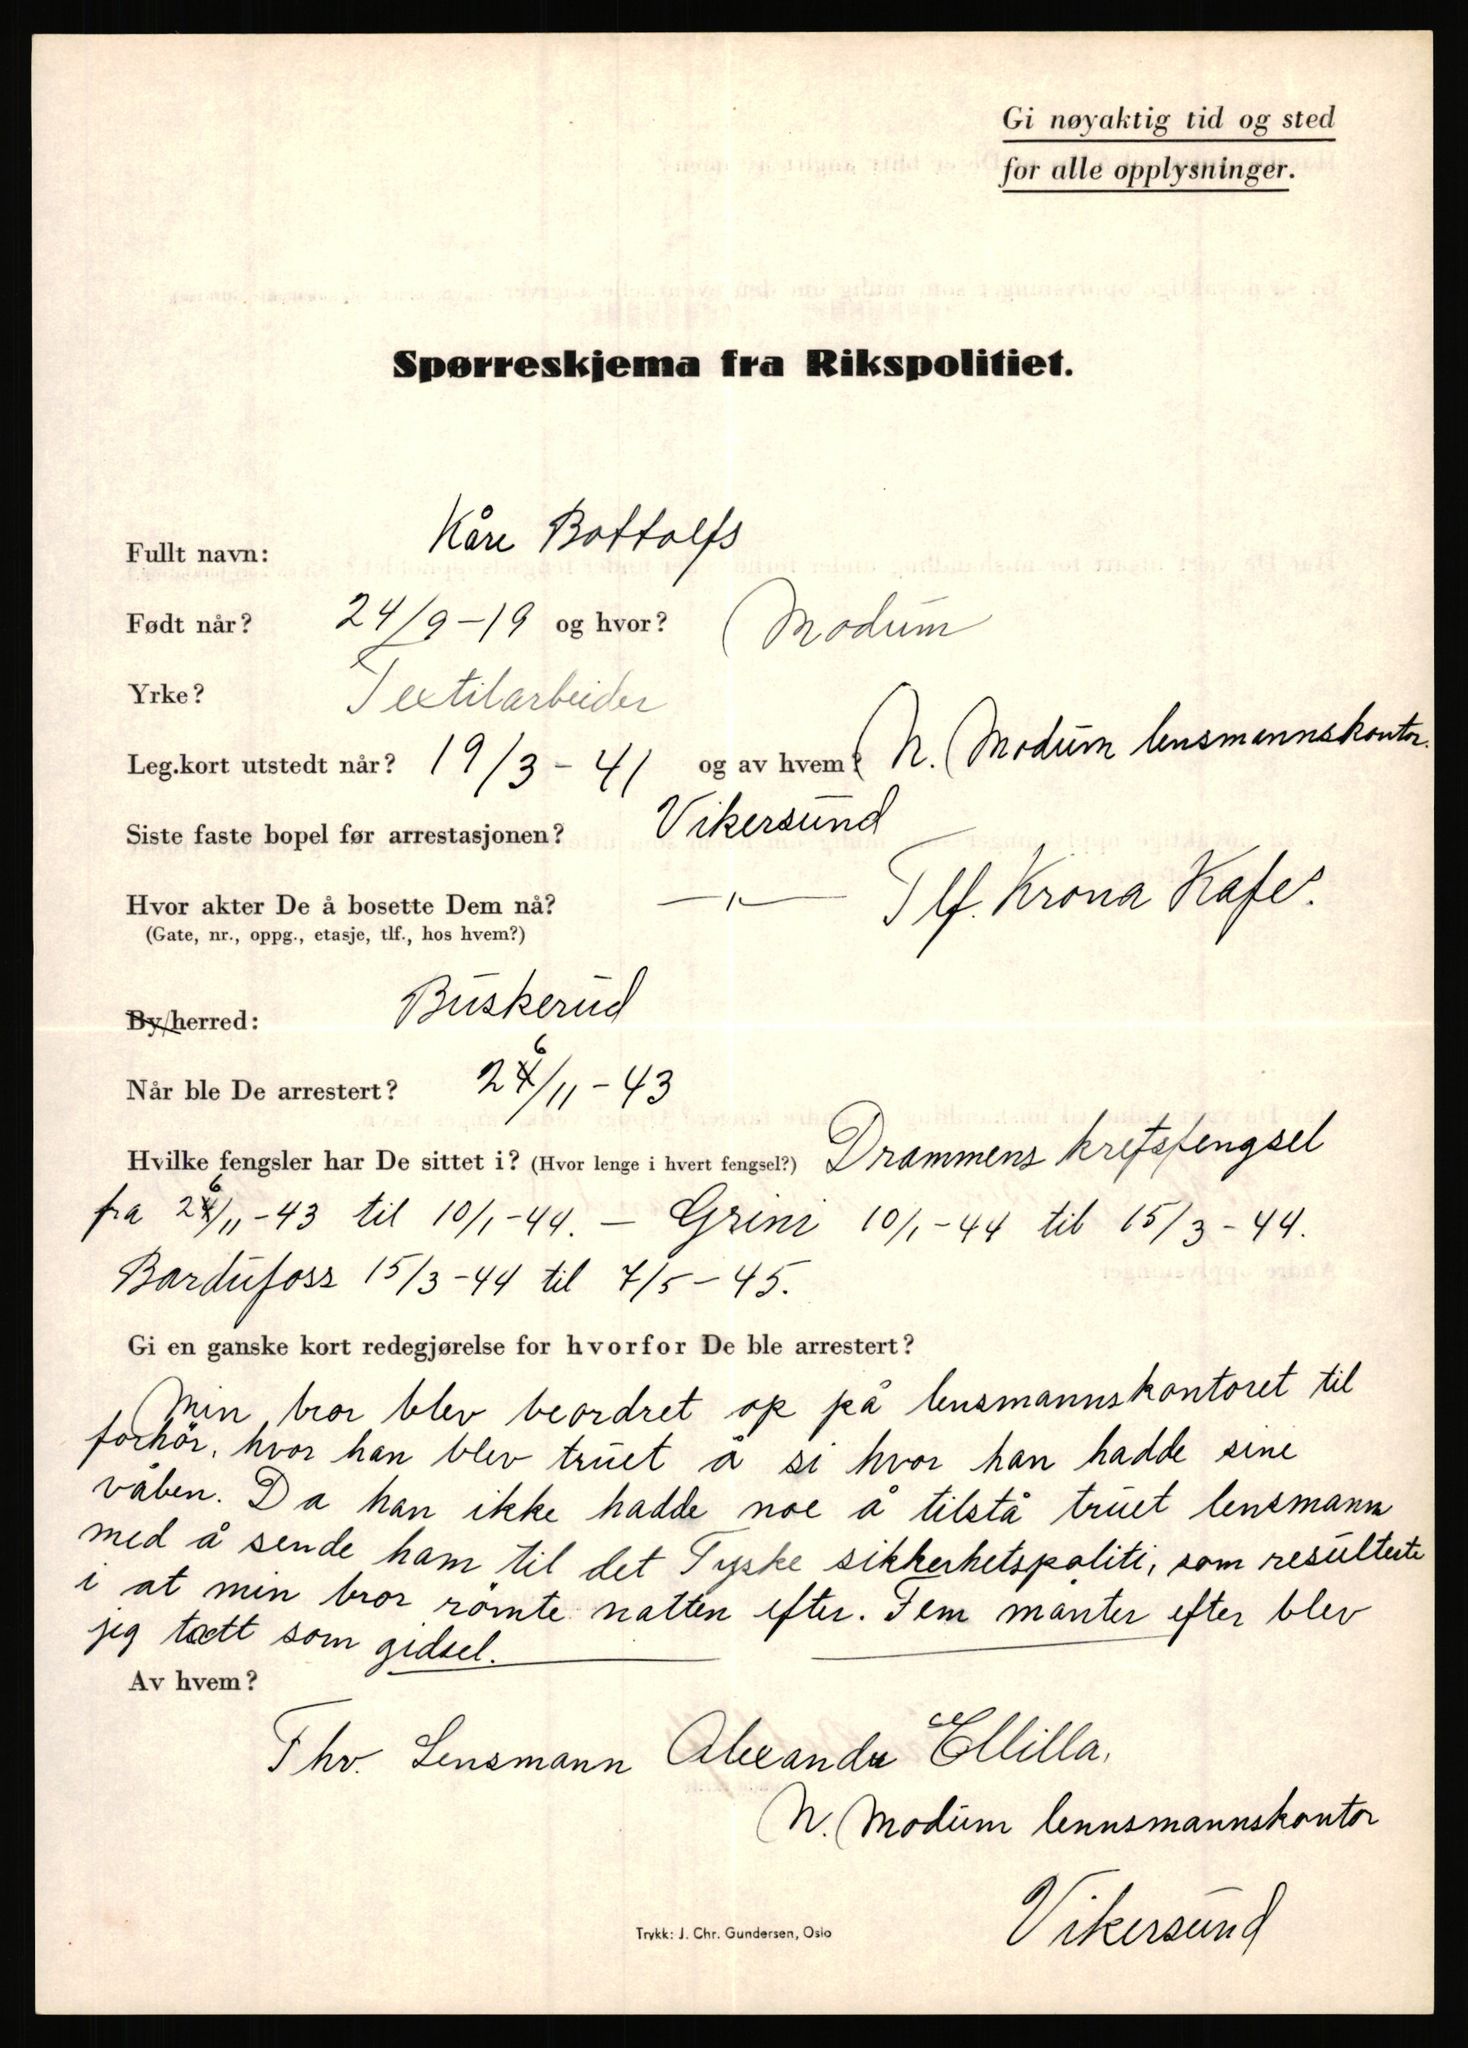 Gi nøyaktig tid og sted
for alle opplysninger.
Spørreskjema fra Rikspolitiet.
Fullt navn: Kåre Bottolfs
Født når? 24/9-19 og hvor? Modum
Yrke? Textilarbeider
Leg.kort utstedt når? 19/3-41 og av hvem? N. Modum lensmannskontor.
Siste faste bopel før arrestasjonen? Vikersund
Hvor akter De å bosette Dem nå? —"— Tlf. Krona Kafe.
(Gate, nr., oppg., etasje, tlf., hos hvem?)
By/herred: Buskerud
Når ble De arrestert? 26/11-43
Hvilke fengsler har De sittet i? (Hvor lenge i hvert fengsel?) Drammens kretsfengsel
fra 26/11-43 til 10/1-44. — Grini 10/1-44 til 15/3-44.
Bardufoss 15/3-44 til 7/5-45.
Gi en ganske kort redegjørelse for hvorfor De ble arrestert?
Min bror blev beordret op på lensmannskontoret til
forhör, hvor han blev truet å si hvor han hadde sine
våben. Da han ikke hadde noe å tilstå truet lensmann
med å sende ham til det Tyske sikkerhetspoliti, som resulterte
i at min bror römte natten efter. Fem månter efter blev
jeg tatt som gidsel.
Av hvem?
Fhv. Lensmann Alexander Ellilla,
N. Modum lennsmannskontor
Vikersund
Trykk: J. Chr. Gundersen, Oslo